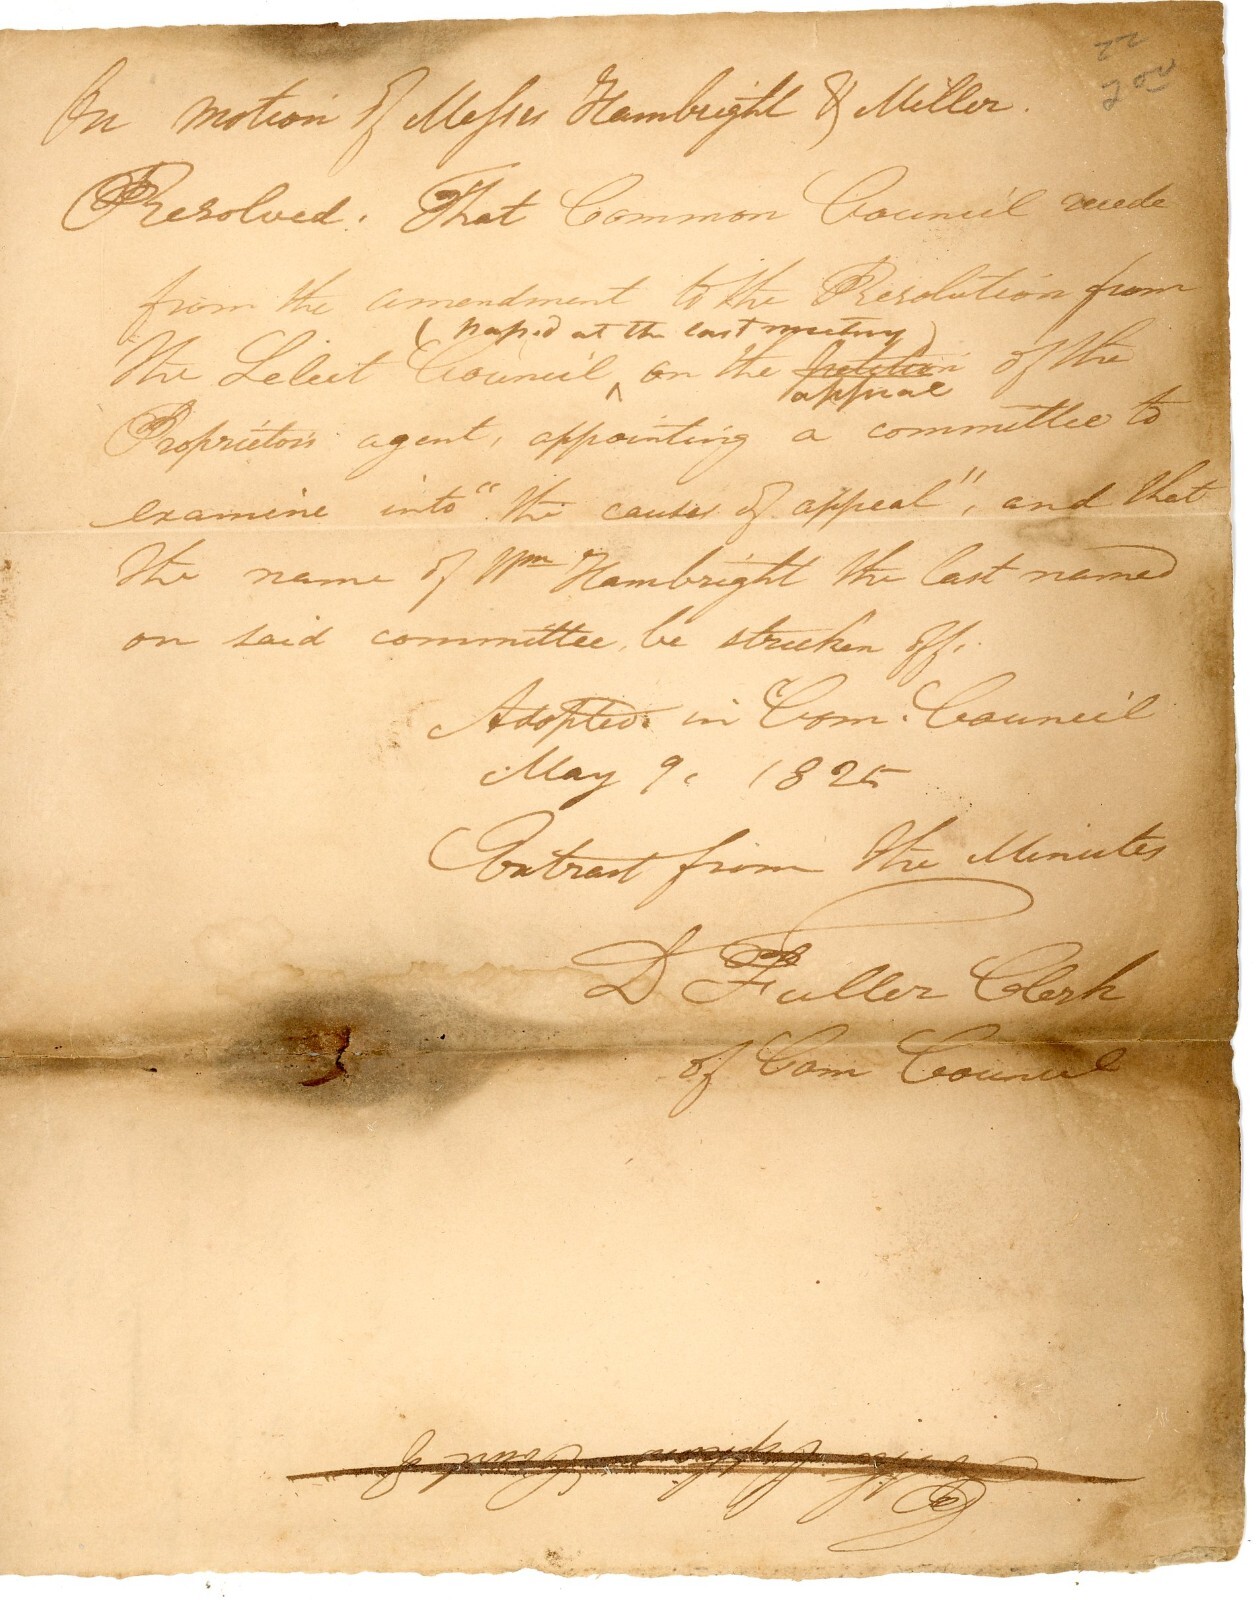 22
On motion of Messrs Hambright & Miller.
Resolved. That Common Council recede
from the amendment to the Resolution from
(passed at the last meeting)
the Select Council ^ on the petition of the
appeal
Proprietors agent, appointing a committee to
examine into "the causes of appeal", and that
the name of Wm Hambright the last named
on said committee, be stricken off.
Adopted in Com. Council
May 9. 1825
Extract from the Minutes
D Fuller Clerk
of Com Council